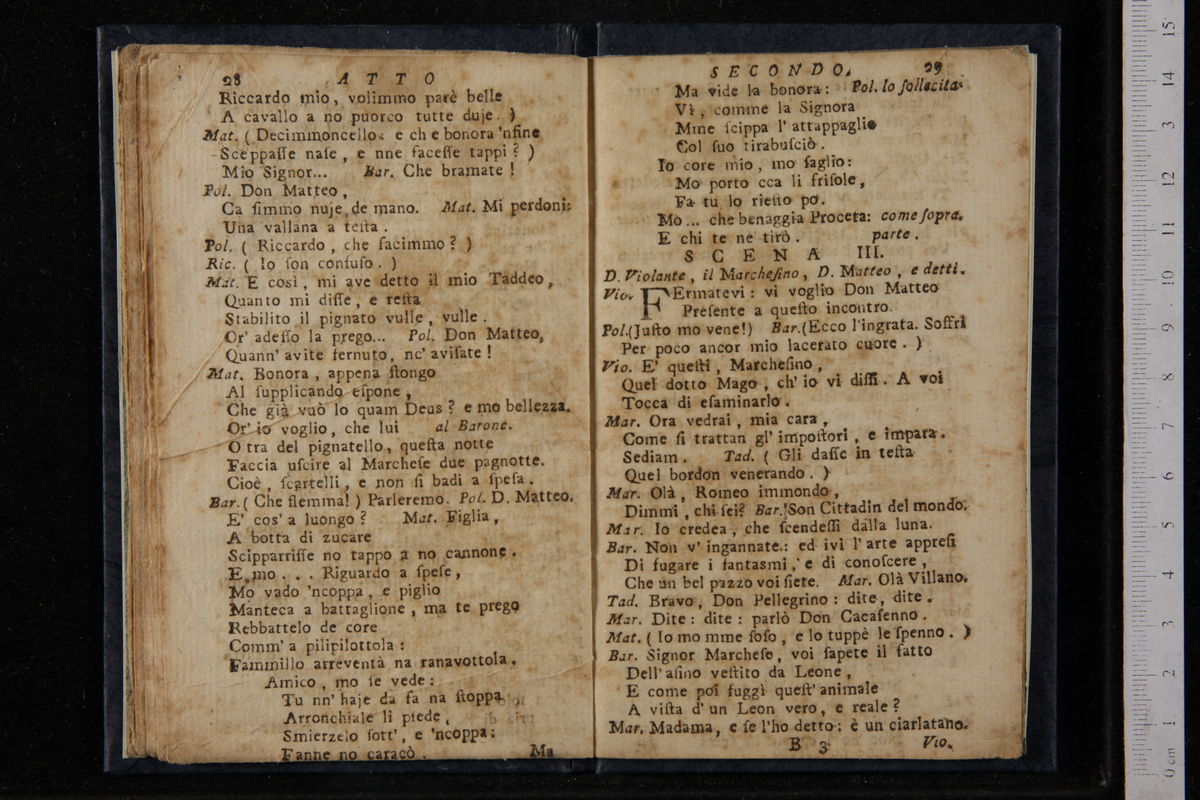 28 ATTO
Riccardo mio, volimmo parè belle
A cavallo a no puorco tutte duje. )
Mat. ( Decimmoncello. e che bonora 'nfine
Sceppaſſe naſe, e nne faceſſe tappi? )
Mio Signor... Bar. Che bramate!
Pol. Don Matteo,
Ca ſimmo nuje de mano. Mat. Mi perdoni;
Una vallana a teſta.
Pol. ( Riccardo, che facimmo? )
Ric. ( Io ſon confuſo. )
Mat. E così, mi ave detto il mio Taddeo,
Quanto mi diſſe, e reſta
Stabilito il pignato vulle, vulle.
Or' adeſſo la prego... Pol. Don Matteo,
Quann' avite fernuto, nc' aviſate!
Mat. Bonora, appena ſtongo
Al ſupplicando eſpone,
Che già vuò lo quam Deus? e mo bellezza.
Or' io voglio, che lui al Barone.
O tra del pignatello, queſta notte
Faccia uſcire al Marcheſe due pagnotte.
Cioè, ſcartelli, e non ſi badi a ſpeſa.
Bar. ( Che flemma! ) Parleremo. Pol. D. Matteo.
E' cos' a luongo? Mat. Figlia,
A botta di zucare
Scipparriſſe no tappo a no cannone.
E mo... Riguardo a ſpeſe,
Mo vado 'ncoppa, e piglio
Manteca a battaglione, ma te prego
Rebbattelo de core
Comm' a pilipilottola:
Fammillo arreventà na ranavottola.
Amico, mo ſe vede:
Tu nn' haje da fa na ſtoppa
Arronchiale li piede,
Smierzelo ſott', e 'ncoppa;
Fanne no caracò.
Ma
SECONDO. 29
Ma vide la bonora: Pol. lo ſollecita.
Vì, comme la Signora
Mme ſcippa l' attappaglio
Col ſuo tirabuſciò.
Io core mio, mo ſaglio:
Mo porto cca li friſole,
Fa tu lo rieſto po.
Mo... che benaggia Proceta: come ſopra.
E chi te ne tirò. parte.
SCENA III.
D. Violante, il Marcheſino, D. Matteo, e detti.
Vio. FErmatevi: vi voglio Don Matteo
Preſente a queſto incontro.
Pol. (Juſto mo vene!) Bar. (Ecco l'ingrata. Soffri
Per poco ancor mio lacerato cuore. )
Vio. E' queſti, Marcheſino,
Quel dotto Mago, ch' io vi diſſi. A voi
Tocca di eſaminarlo.
Mar. Ora vedrai, mia cara,
Come ſi trattan gl' impoſtori, e impara.
Sediam. Tad. ( Gli daſſe in teſta
Quel bordon venerando. )
Mar. Olà, Romeo immondo,
Dimmi, chi ſei? Bar. Son Cittadin del mondo.
Mar. Io credea, che ſcendeſſi dalla luna.
Bar. Non v' ingannate: ed ivi l' arte appreſi
Di fugare i fantasmi, e di conoſcere,
Che un bel pazzo voi ſiete. Mar. Olà Villano.
Tad. Bravo, Don Pellegrino: dite, dite.
Mar. Dite: dite: parlò Don Cacaſenno.
Mat. ( Io mo mme ſoſo, e lo tuppè le ſpenno. )
Bar. Signor Marcheſe, voi ſapete il fatto
Dell' aſino veſtito da Leone,
E come poi fuggì queſt' animale
A viſta d' un Leon vero, e reale?
Mar. Madama, e ſe l'ho detto: è un ciarlatano.
B 3 Vio.
0 cm 1 2 3 4 5 6 7 8 9 10 11 12 3 14 15